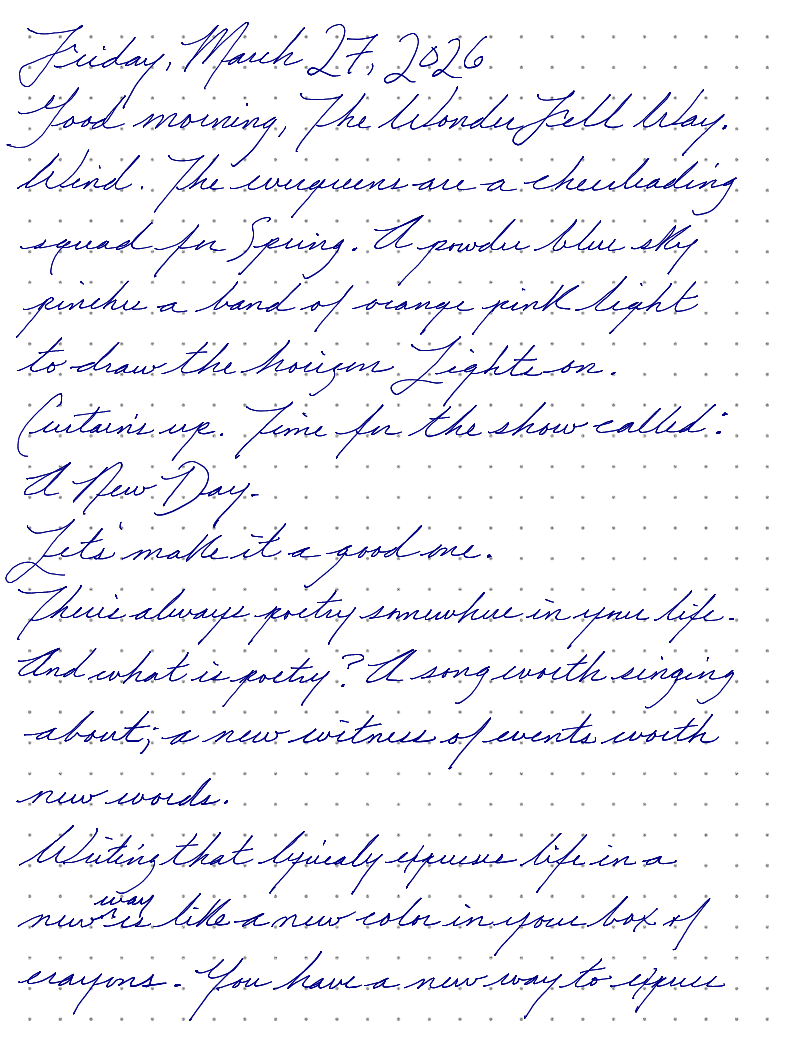 Friday, March 27, 2026
Good morning, The WonderFell Way.
Wind. The evergreens are a cheerleading
squad for Spring. A powder blue sky
pinches a band of orange pink light
to draw the horizon Lights on.
Curtain's up. Time for the show called:
A New Day.
Let's make it a good one.
There's always poetry somewhere in your life.
And what is poetry? A song worth singing
about; a new witness of events worth
new words.
Writing that lyricaly expresses life in a
new way is like a new color in your box of
crayons. You have a new way to express